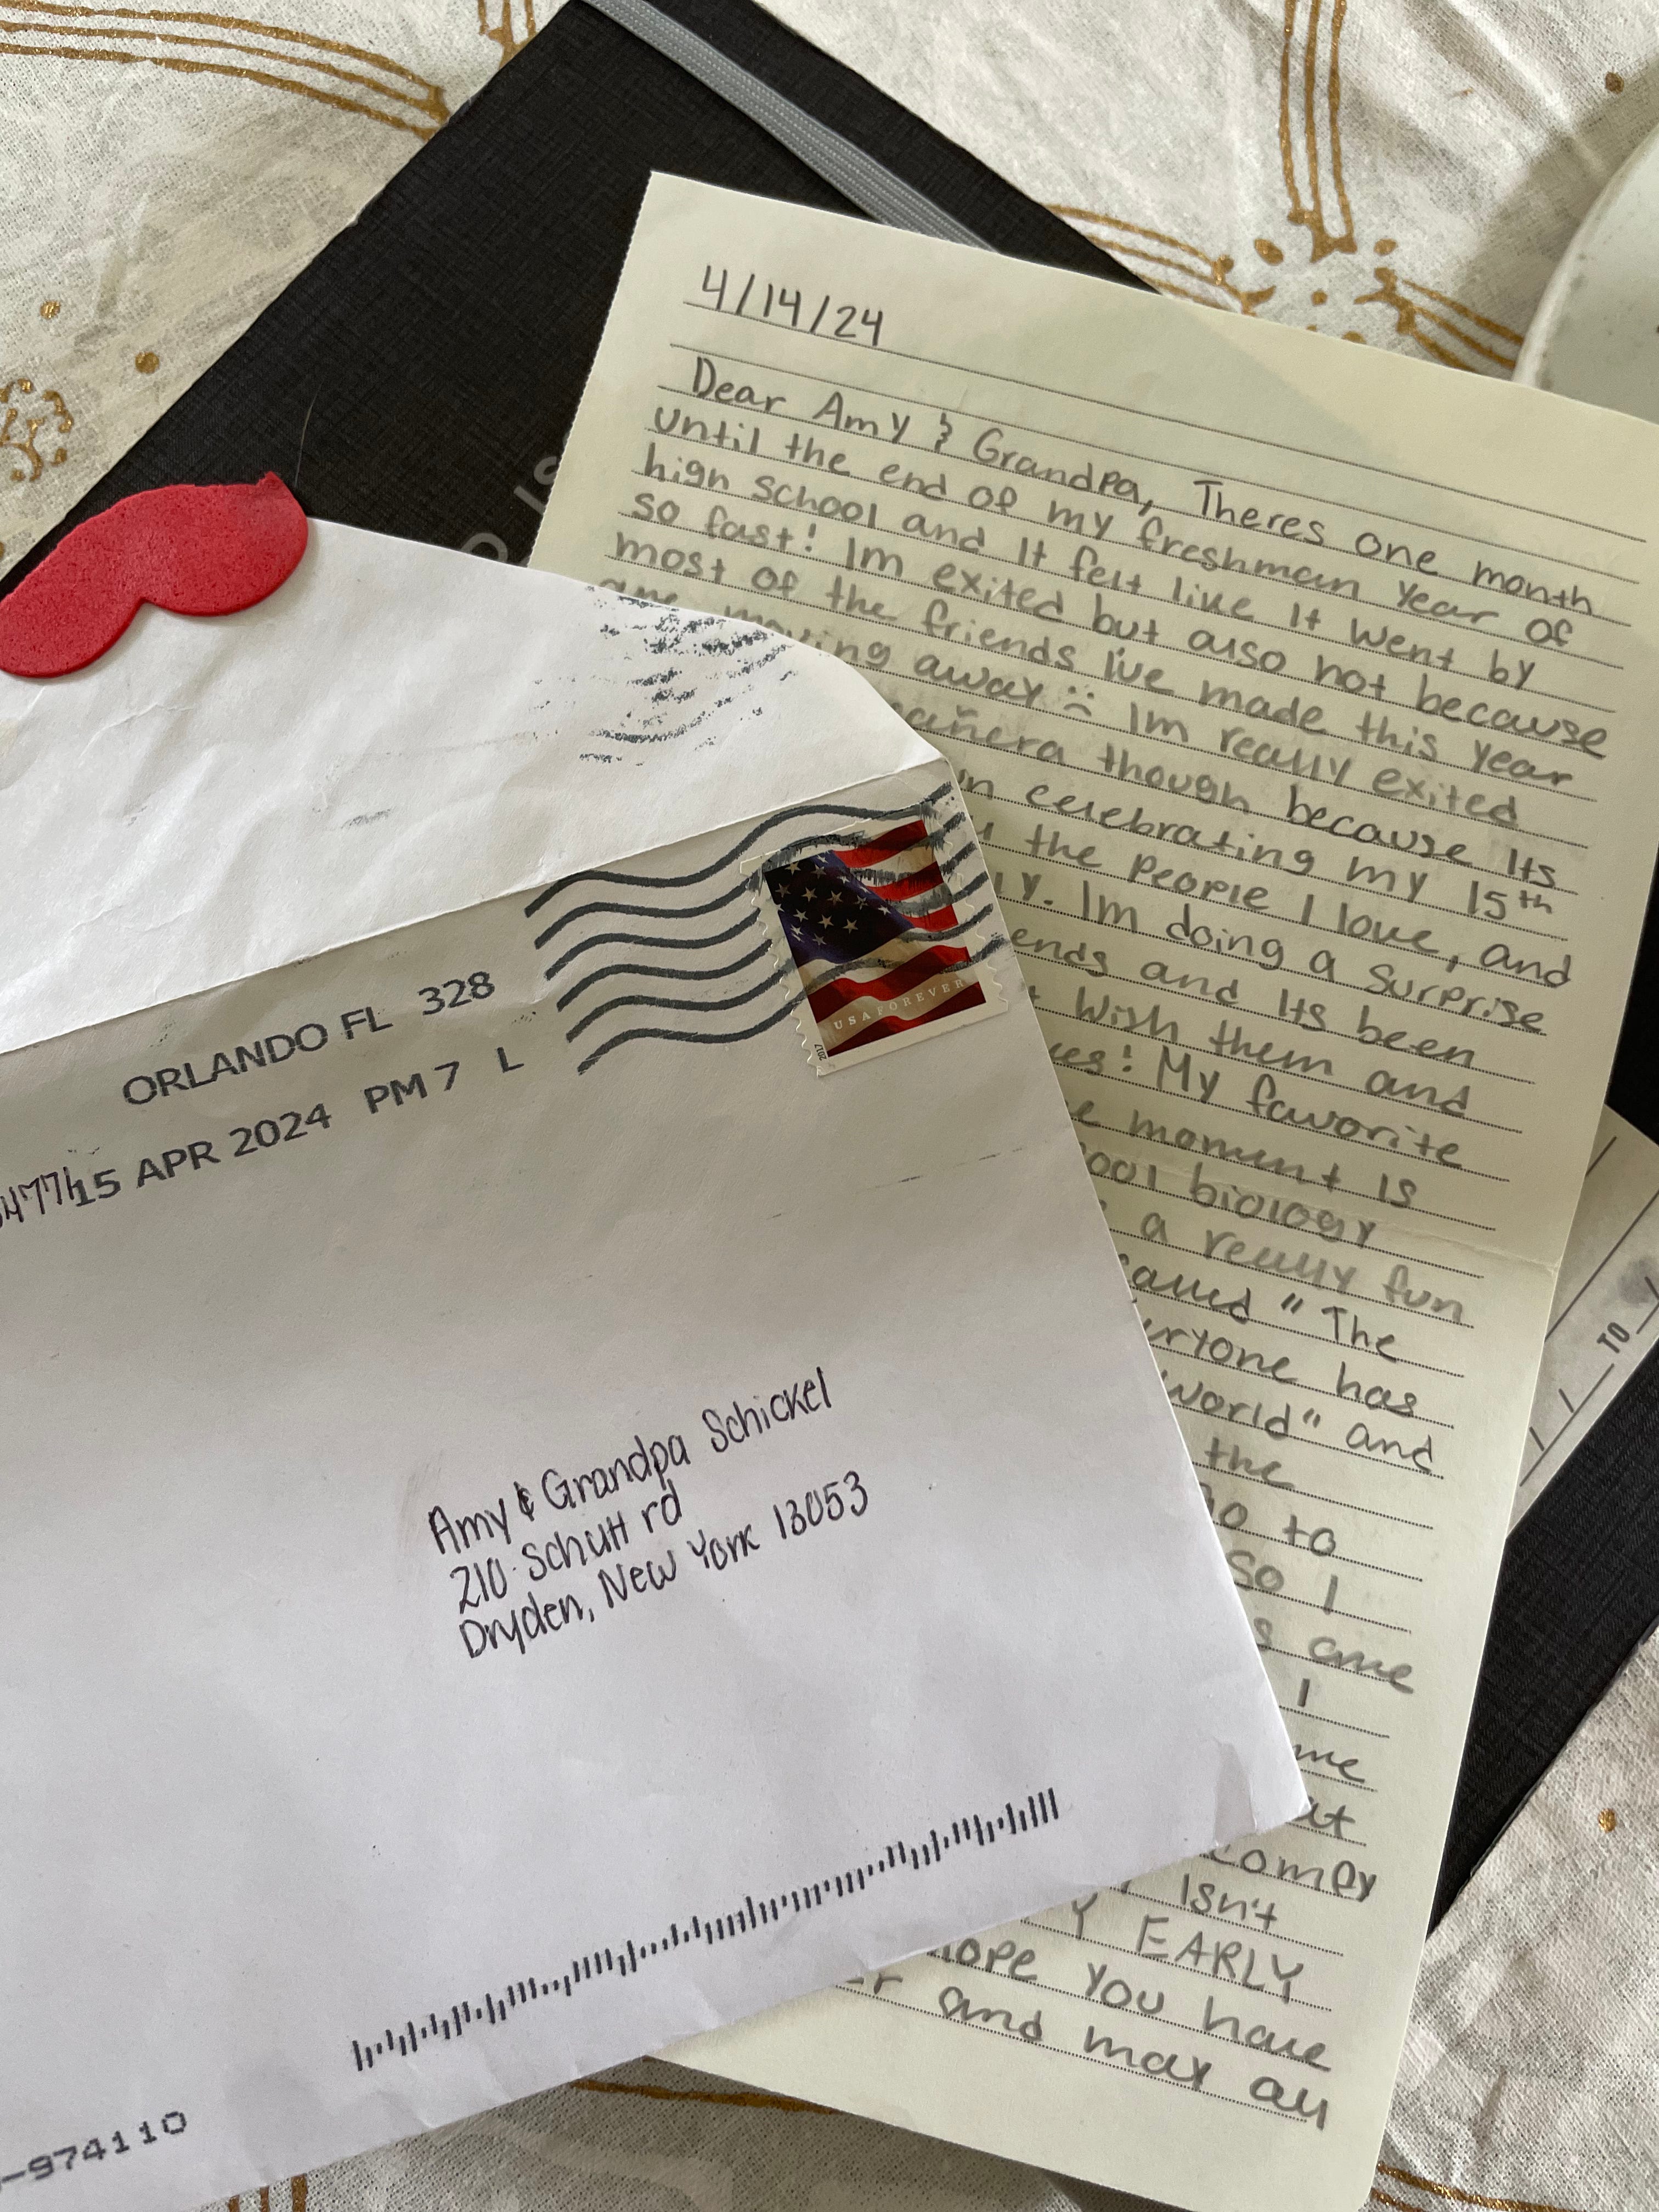 4/14/24
Dear Amy & Grandpa, Theres one month
until the end of my freshman year of
high school and it felt like it went by
so fast! Im exited but also not because
most of the friends i've made this year
are moving away :( Im really exited
though because its
celebrating my 15th
the people I love, and
Im doing a surprise
and its been
wish them and
! My favorite
moment is
biology
a really fun
called "The
has
World" and
the
to
so I
are
I
me
comfy
isn't
EARLY
hope you have
and may all
ORLANDO FL 328
15 APR 2024 PM 7 L
USA FOREVER
2017
Amy & Grandpa Schickel
210 Schutt rd
Dryden, New York 13053
-974110
TO
IS